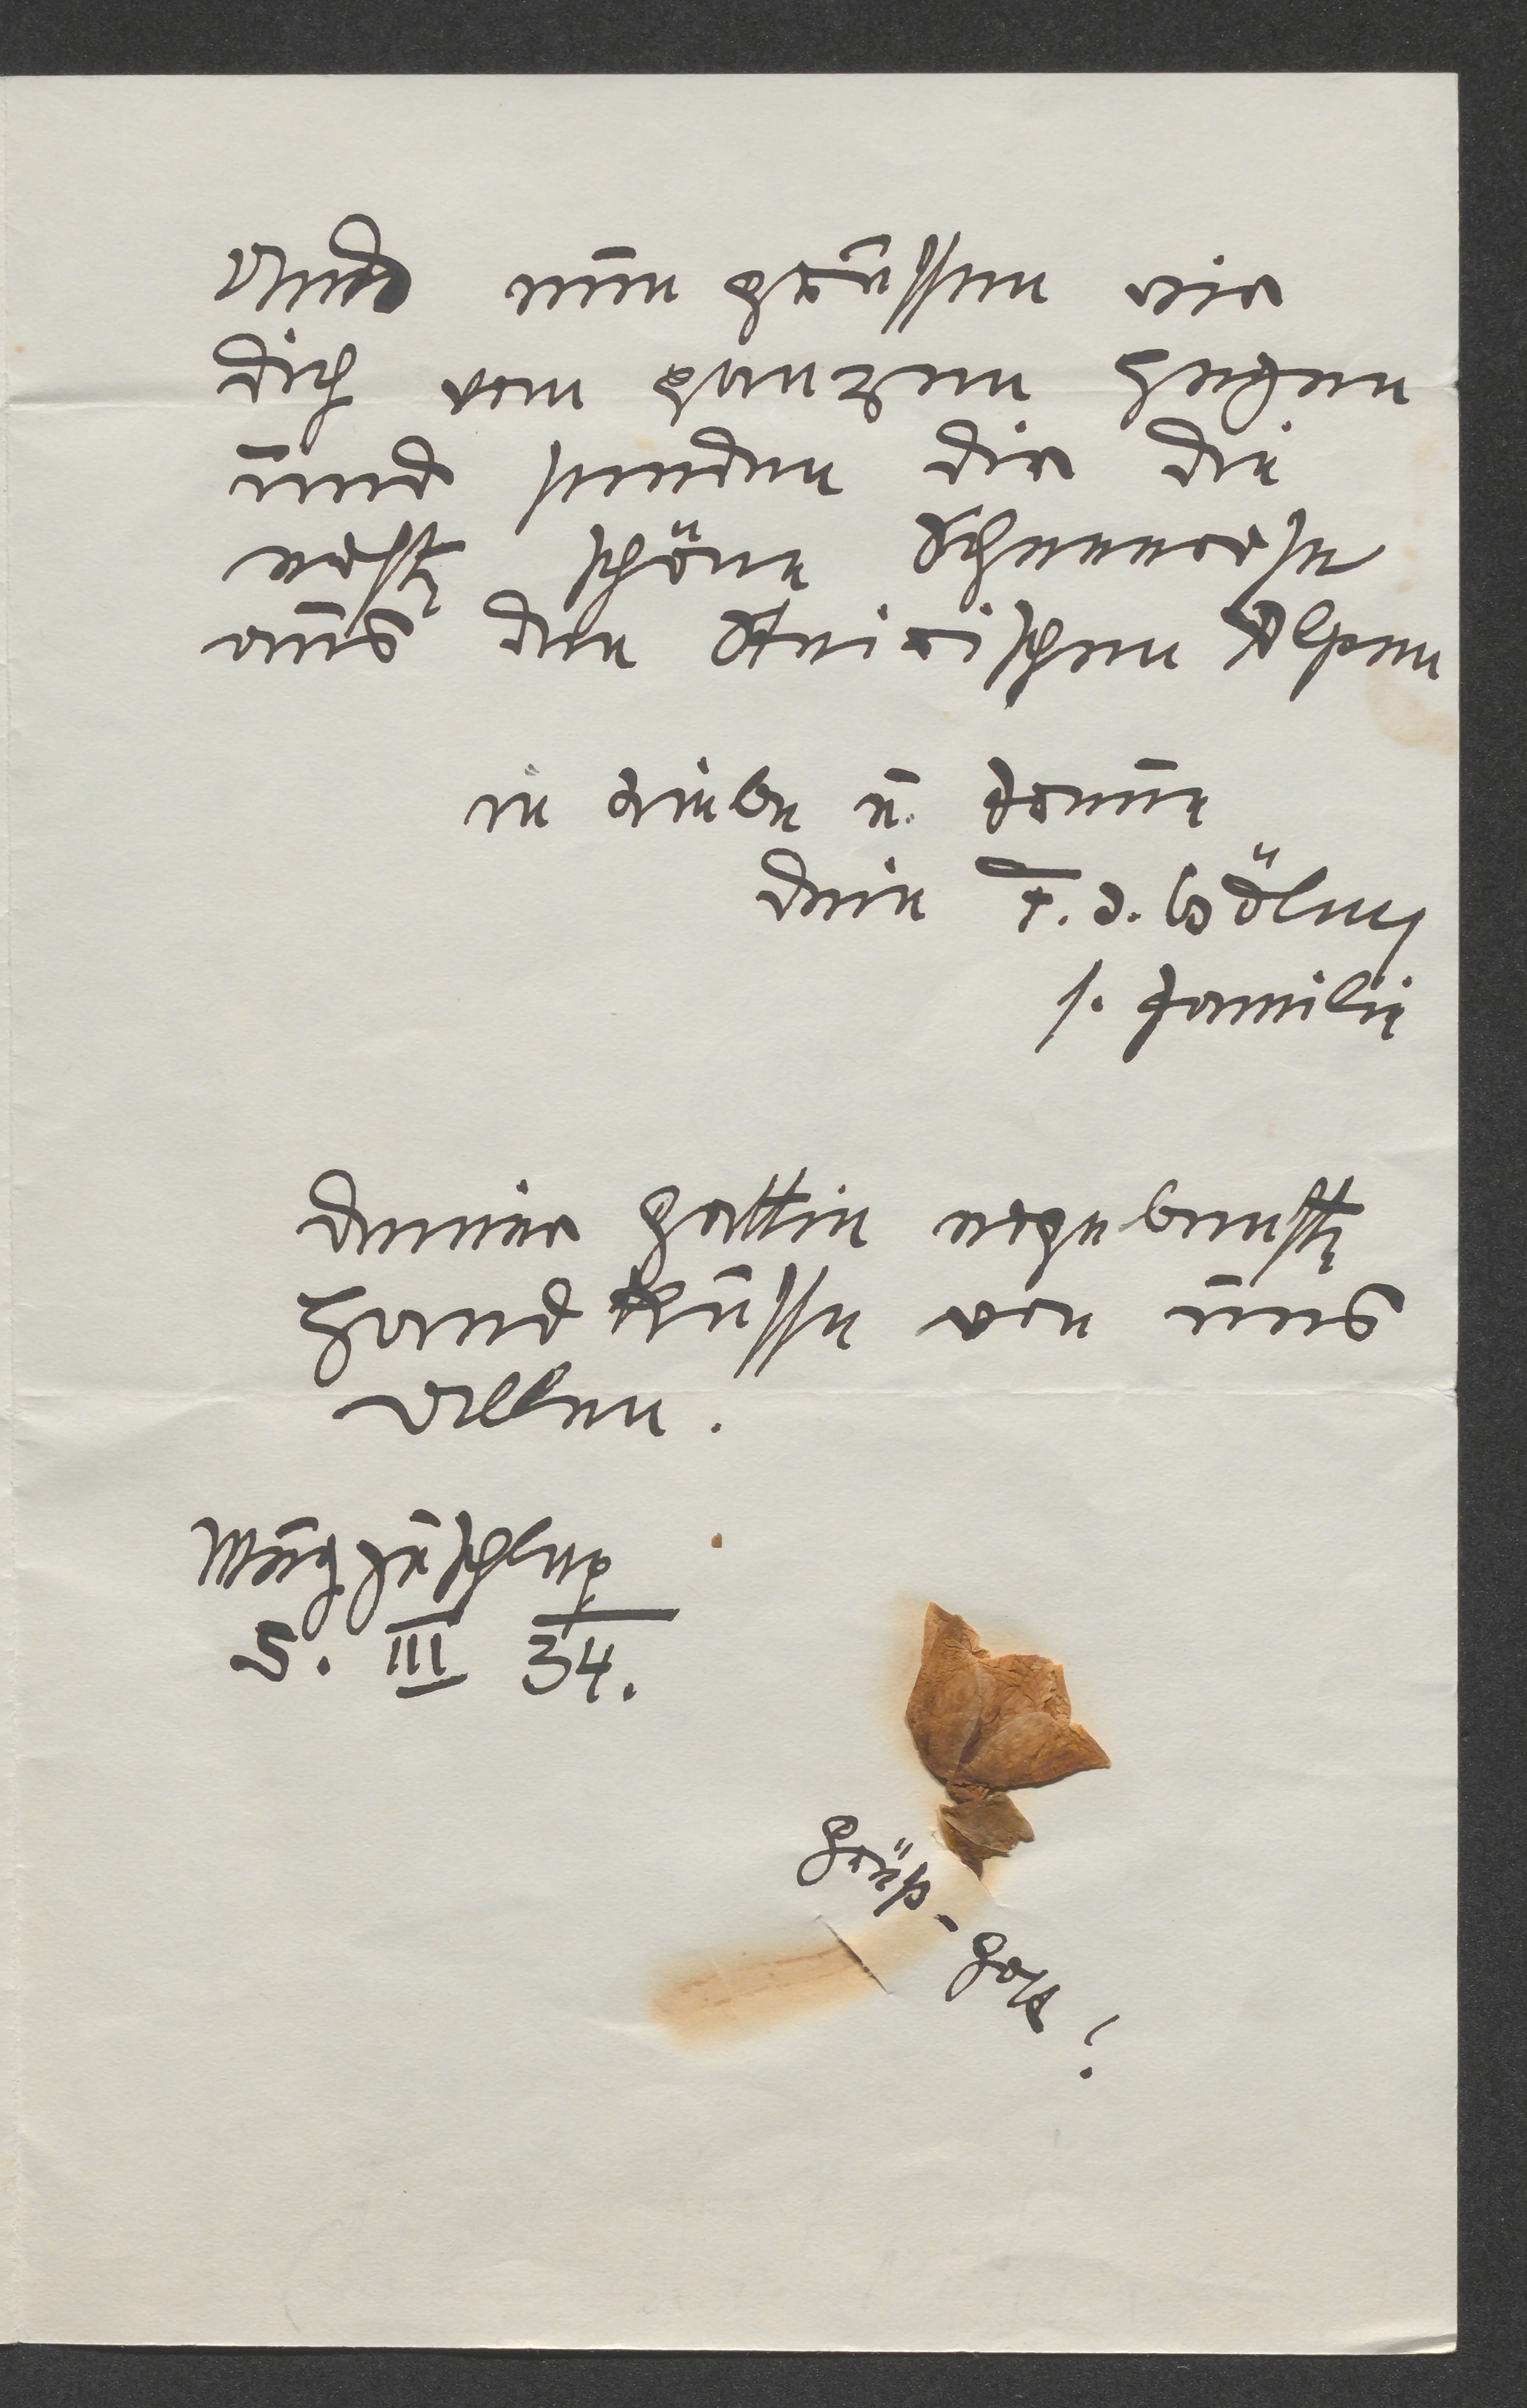 Und nun grüssen wir
Dich von ganzem Herzen
und senden Dir die
erste schöne Schneerose
aus den Steirischen Alpen
in Liebe u. Treue
Dein F. J. Böhm
s. Familie
Deiner Gattin ergebenste
Handküsse von uns
Allen.
Mürzzuschlag
5. III 34.
Grüß-
Gott!